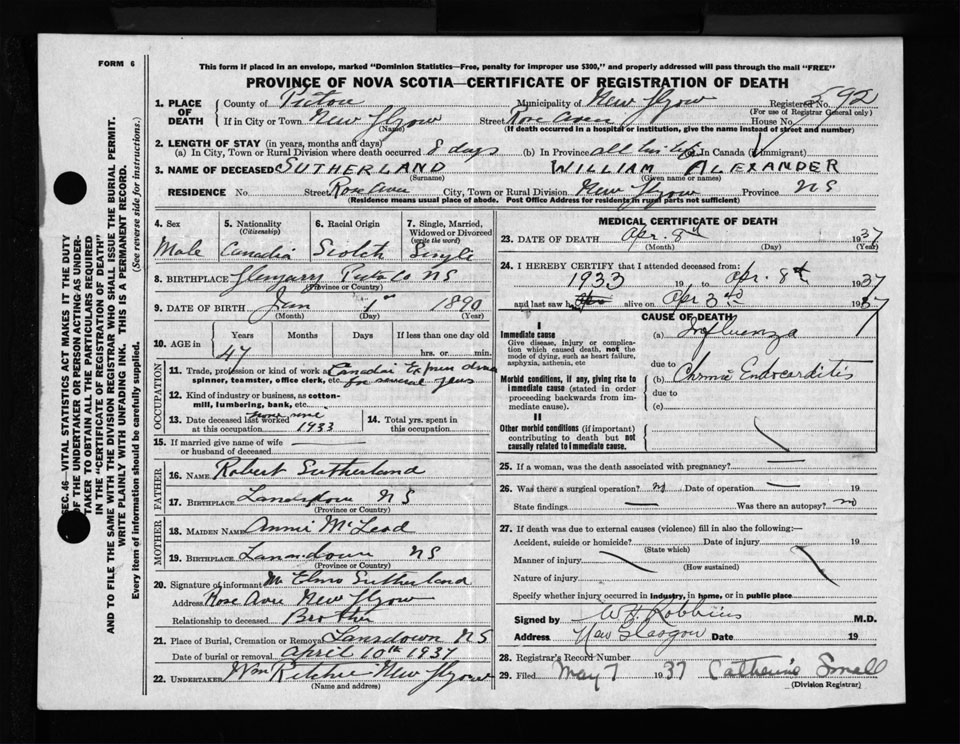 FORM 6
This form if placed in an envelope, marked "Dominion Statistics—Free, penalty for improper use $300," and properly addressed will pass through the mail "FREE"
PROVINCE OF NOVA SCOTIA—CERTIFICATE OF REGISTRATION OF DEATH
1. PLACE OF DEATH
County of Pictou Municipality of New Glgow Registered No. 592
(For use of Registrar General only)
If in City or Town New Glgow Street Rose Aven House No.
(Name) (If death occurred in a hospital or institution, give the name instead of street and number)
2. LENGTH OF STAY (in years, months and days)
(a) In City, Town or Rural Division where death occurred 8 days (b) In Province all his life In Canada (if immigrant)
3. NAME OF DECEASED SUTHERLAND WILLIAM ALEXANDER
(Surname) (Given name or names)
RESIDENCE No. Street Rose Ave City, Town or Rural Division New Glgow Province NS
(Residence means usual place of abode. Post Office Address for residents in rural parts not sufficient)
4. Sex 5. Nationality (Citizenship) 6. Racial Origin 7. Single, Married, Widowed or Divorced (write the word)
Male Canadia Scotch Single
8. BIRTHPLACE Glengarry Pict Co NS
(Province or Country)
9. DATE OF BIRTH Jan 1st 1890
(Month) (Day) (Year)
10. AGE in Years Months Days If less than one day old
47 hrs. or min.
OCCUPATION
11. Trade, profession or kind of work as spinner, teamster, office clerk, etc. for several years
12. Kind of industry or business, as cotton-mill, lumbering, bank, etc.
13. Date deceased last worked at this occupation 1933
14. Total yrs. spent in this occupation
15. If married give name of wife or husband of deceased
FATHER
16. NAME Robert Sutherland
17. BIRTHPLACE Lansdowne NS
(Province or Country)
MOTHER
18. MAIDEN NAME Annie McLeod
19. BIRTHPLACE Lansdowne NS
(Province or Country)
20. Signature of informant Mr Elmo Sutherland
Address Rose Ave New Glgow
Relationship to deceased Brother
21. Place of Burial, Cremation or Removal Lansdown NS
Date of burial or removal April 10th 1937
22. UNDERTAKER Wm Ritchie New Glgow
(Name and address)
MEDICAL CERTIFICATE OF DEATH
23. DATE OF DEATH Apr. 8th 1937
(Month) (Day) (Year)
24. I HEREBY CERTIFY that I attended deceased from:
1933 19 to Apr. 8th 1937
and last saw h alive on Apr 3rd 1937
CAUSE OF DEATH
I
Immediate cause
Give disease, injury or complication which caused death, not the mode of dying, such as heart failure, asphyxia, asthenia, etc
(a) Influenza
due to
Morbid conditions, if any, giving rise to immediate cause (stated in order proceeding backwards from immediate cause).
(b) Chronic Endocarditis
due to
(c)
II
Other morbid conditions (if important) contributing to death but not causally related to immediate cause.
25. If a woman, was the death associated with pregnancy?
26. Was there a surgical operation? no Date of operation 19
State findings Was there an autopsy? no
27. If death was due to external causes (violence) fill in also the following:—
Accident, suicide or homicide? Date of injury 19
(State which)
Manner of injury
(How sustained)
Nature of injury
Specify whether injury occurred in industry, in home, or in public place
Signed by W H Robbins M.D.
Address New Glasgow Date 19
28. Registrar's Record Number
29. Filed May 7 1937 Catherine Small
(Division Registrar)
SEC. 46—VITAL STATISTICS ACT MAKES IT THE DUTY
OF THE UNDERTAKER OR PERSON ACTING AS UNDER-
TAKER TO OBTAIN ALL THE PARTICULARS REQUIRED
IN THE "CERTIFICATE OF REGISTRATION OF DEATH"
AND TO FILE THE SAME WITH THE DIVISION REGISTRAR WHO SHALL ISSUE THE BURIAL PERMIT.
WRITE PLAINLY WITH UNFADING INK. THIS IS A PERMANENT RECORD.
Every item of information should be carefully supplied. (See reverse side for instructions.)